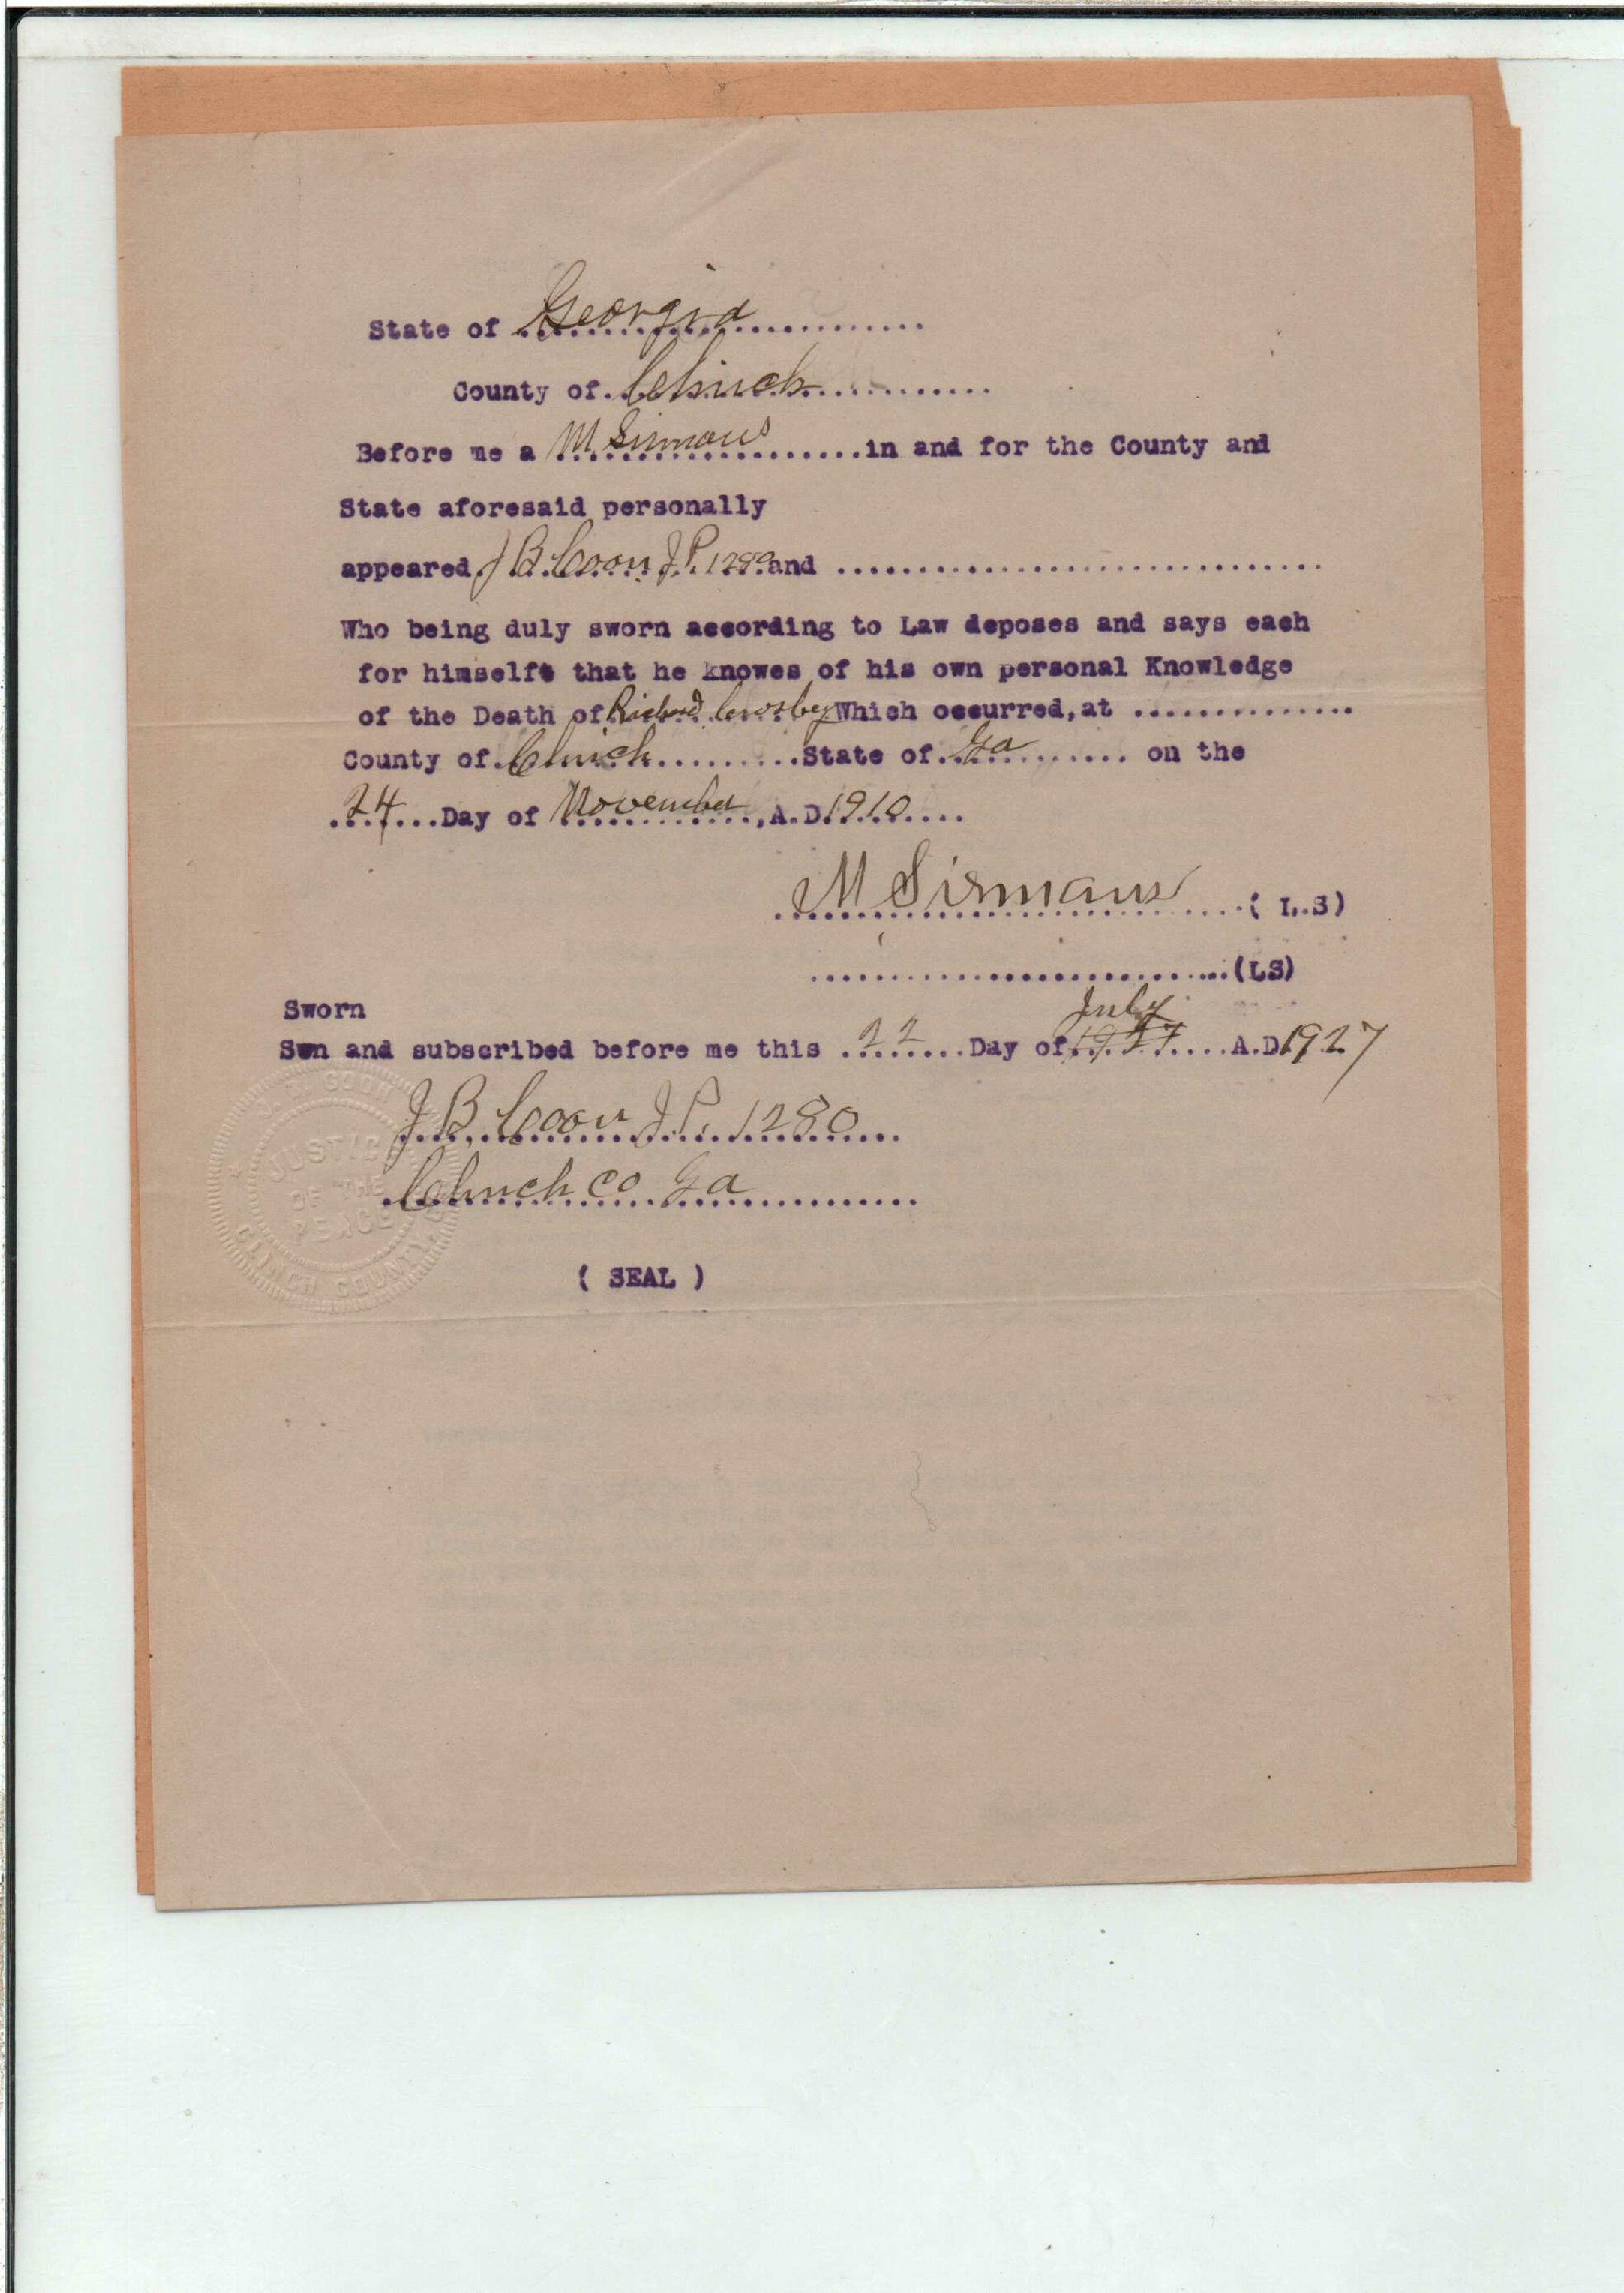 State of Georgia
County of Clinch
Before me a M Sirmans in and for the County and
State aforesaid personally
appeared J B Coon J.P. 1280 and
Who being duly sworn according to Law deposes and says each
for himselft that he knowes of his own personal Knowledge
of the Death of Richard Crosby Which occurred, at
County of Clinch State of Ga on the
24 Day of November, A.D. 1910
M Sirmans ( L.S)
(LS)
Sworn
July
Swn and subscribed before me this 22 Day of 1927 A.D. 1927
J B Coon J.P. 1280
Clinch Co Ga
J. B. COON
JUSTICE
OF THE
PEACE
CLINCH COUNTY,
( SEAL )